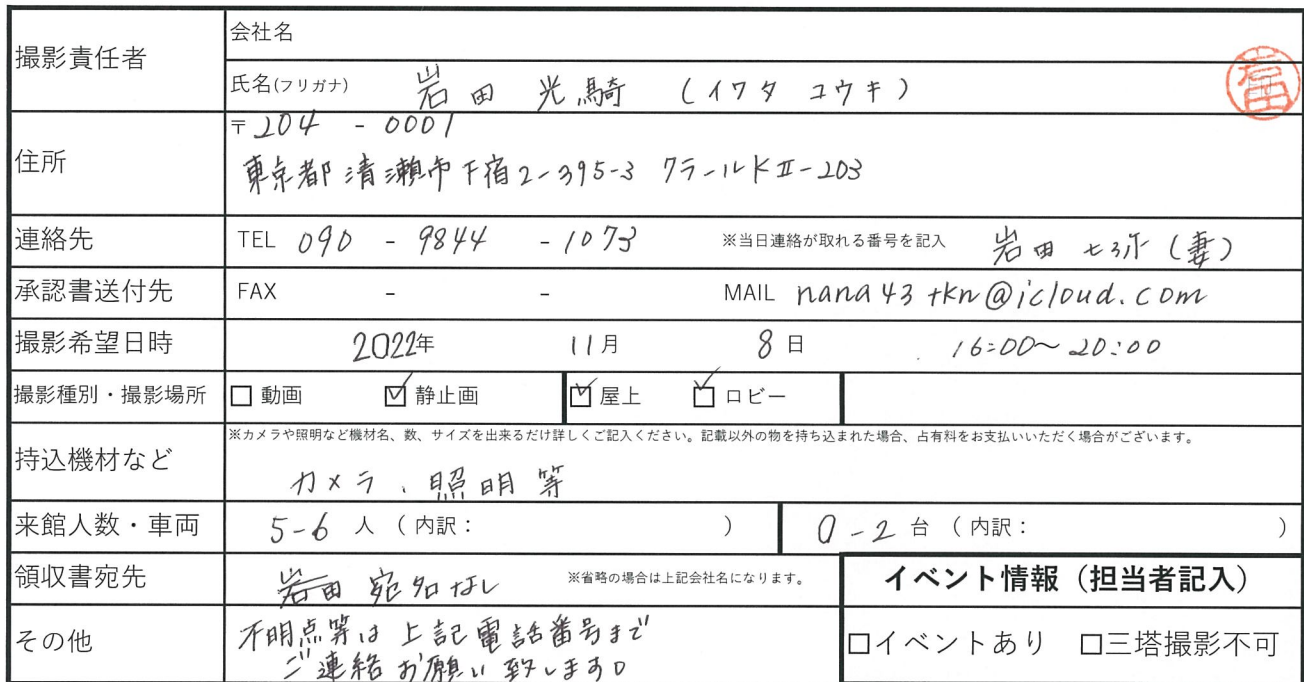 撮影責任者
会社名
氏名(フリガナ) 岩田 光騎 (イワタ コウキ)
岩田
住所
〒204 - 0001
東京都清瀬市下宿2-395-3 クラールKⅡ-203
連絡先
TEL 090 - 9844 - 1073 ※当日連絡が取れる番号を記入 岩田 七弥(妻)
承認書送付先 FAX - - MAIL nana43tkn@icloud.com
撮影希望日時 2022年 11月 8日 16:00〜20:00
撮影種別・撮影場所 □動画 ☑静止画 ☑屋上 ☑ロビー
※カメラや照明など機材名、数、サイズを出来るだけ詳しくご記入ください。記載以外の物を持ち込まれた場合、占有料をお支払いいただく場合がございます。
持込機材など
カメラ、照明等
来館人数・車両 5-6人(内訳: ) 0-2台(内訳: )
領収書宛先 岩田 宛名なし ※省略の場合は上記会社名になります。
イベント情報(担当者記入)
その他
不明点等は上記電話番号まで
ご連絡お願い致します。
□イベントあり □三塔撮影不可